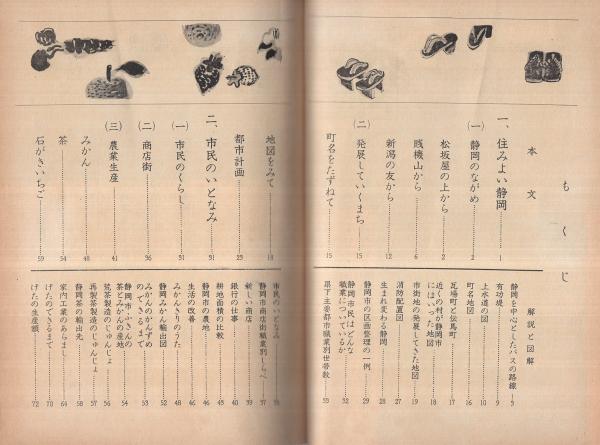 もくじ
本文
一、住みよい静岡……1
㈠静岡のながめ……2
松坂屋の上から……2
賎機山から……6
新潟の友から……12
㈡発展していくまち……15
町名をたずねて……15
地図をみて……18
都市計画……25
二、市民のいとなみ……31
㈠市民のくらし……31
㈡商店街……36
㈢農業生産……41
みかん……48
茶……54
石がきいちご……59
解説と図解
静岡を中心としたバスの路線…3
有功堤……9
上水道の図……10
町名地図……16
瓦場町と伝馬町……17
近くの村が静岡市にはいった地図……18
市街地の発展してきた地図……19
消防配置図……27
生まれ変わる静岡……28
静岡市の区画整理の一例……29
静岡市民はどんな職業についているか……32
県下主要都市職業別世帯数……33
市民のいとなみ……35
静岡市商店街職業別しらべ……37
新しい商店……39
銀行の仕事……40
耕地面積の比較……43
静岡市の農地……45
生活の改善……46
みかんきりのうた……48
静岡みかん輸出図……52
みかんのかんずめのできるまで……53
静岡市・ふきんの茶とみかんの産地……54
荒茶製造のじゅんじょ……56
再製茶製造のじゅんじょ……57
静岡茶の輸出先……58
家内工業のあらまし……64
げたのできるまで……70
げたの生産額……72